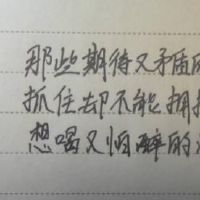 那些期待又矛盾的
抓住却不能拥
想喝又怕醉的